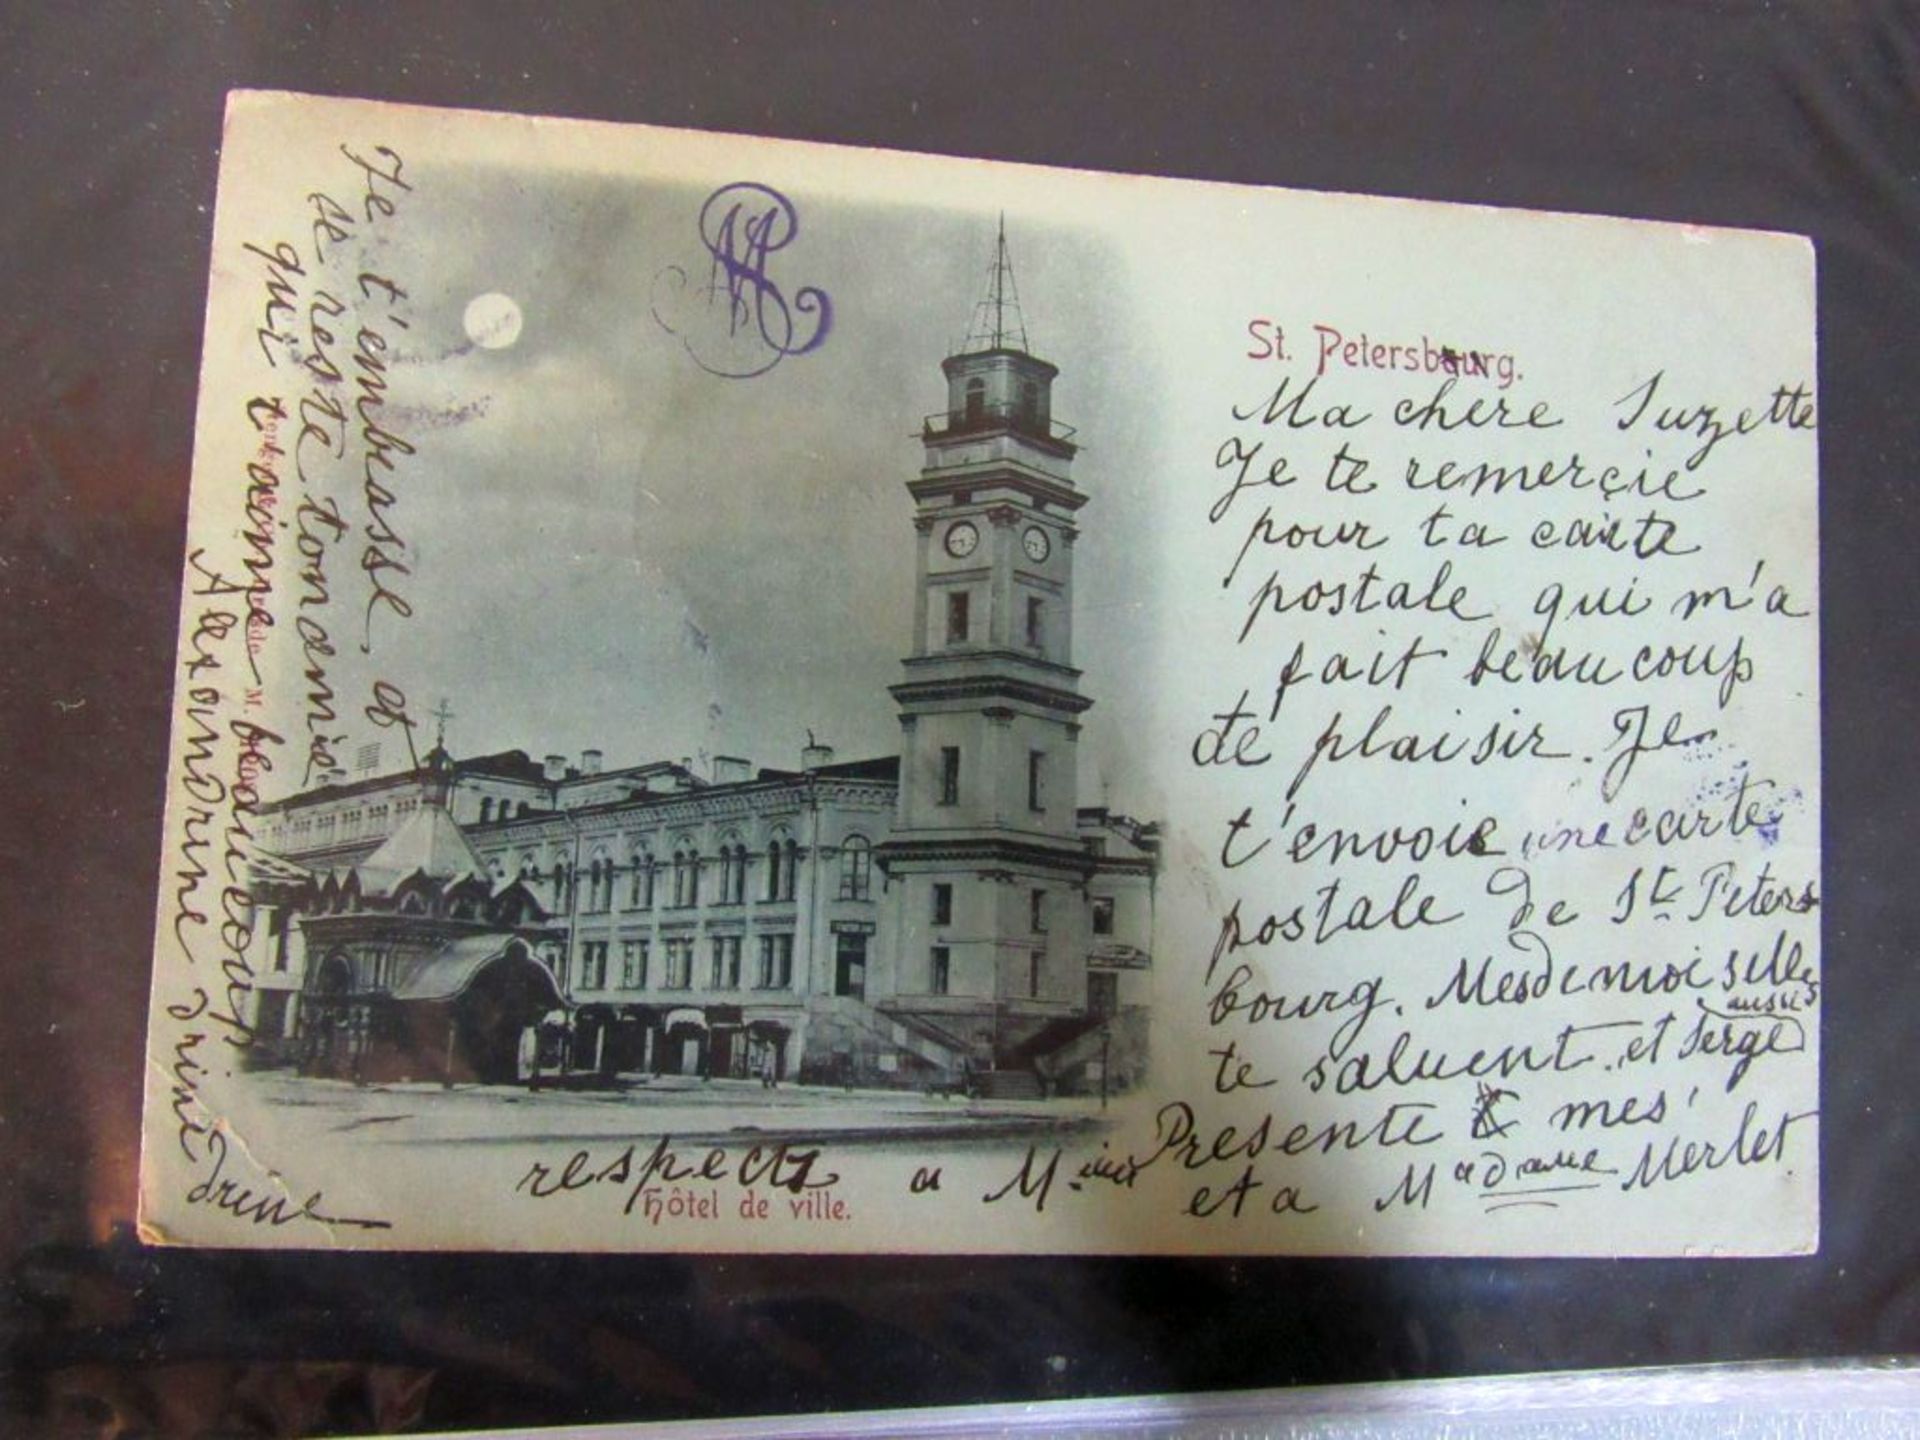 St. Petersbourg.
Ma chere Suzette
Je te remerçie
pour ta carte
postale qui m'a
fait beaucoup
de plaisir. Je
t'envoie une carte
postale de St. Peters
bourg. Mesdemoiselles
aussi
te saluent. et Serge
Presente mes
respects a M
et a Madame Merlet.
Hôtel de ville.
Je t'embrasse, et
se reste ton amie
qui t'aime beaucoup
Alexandrine